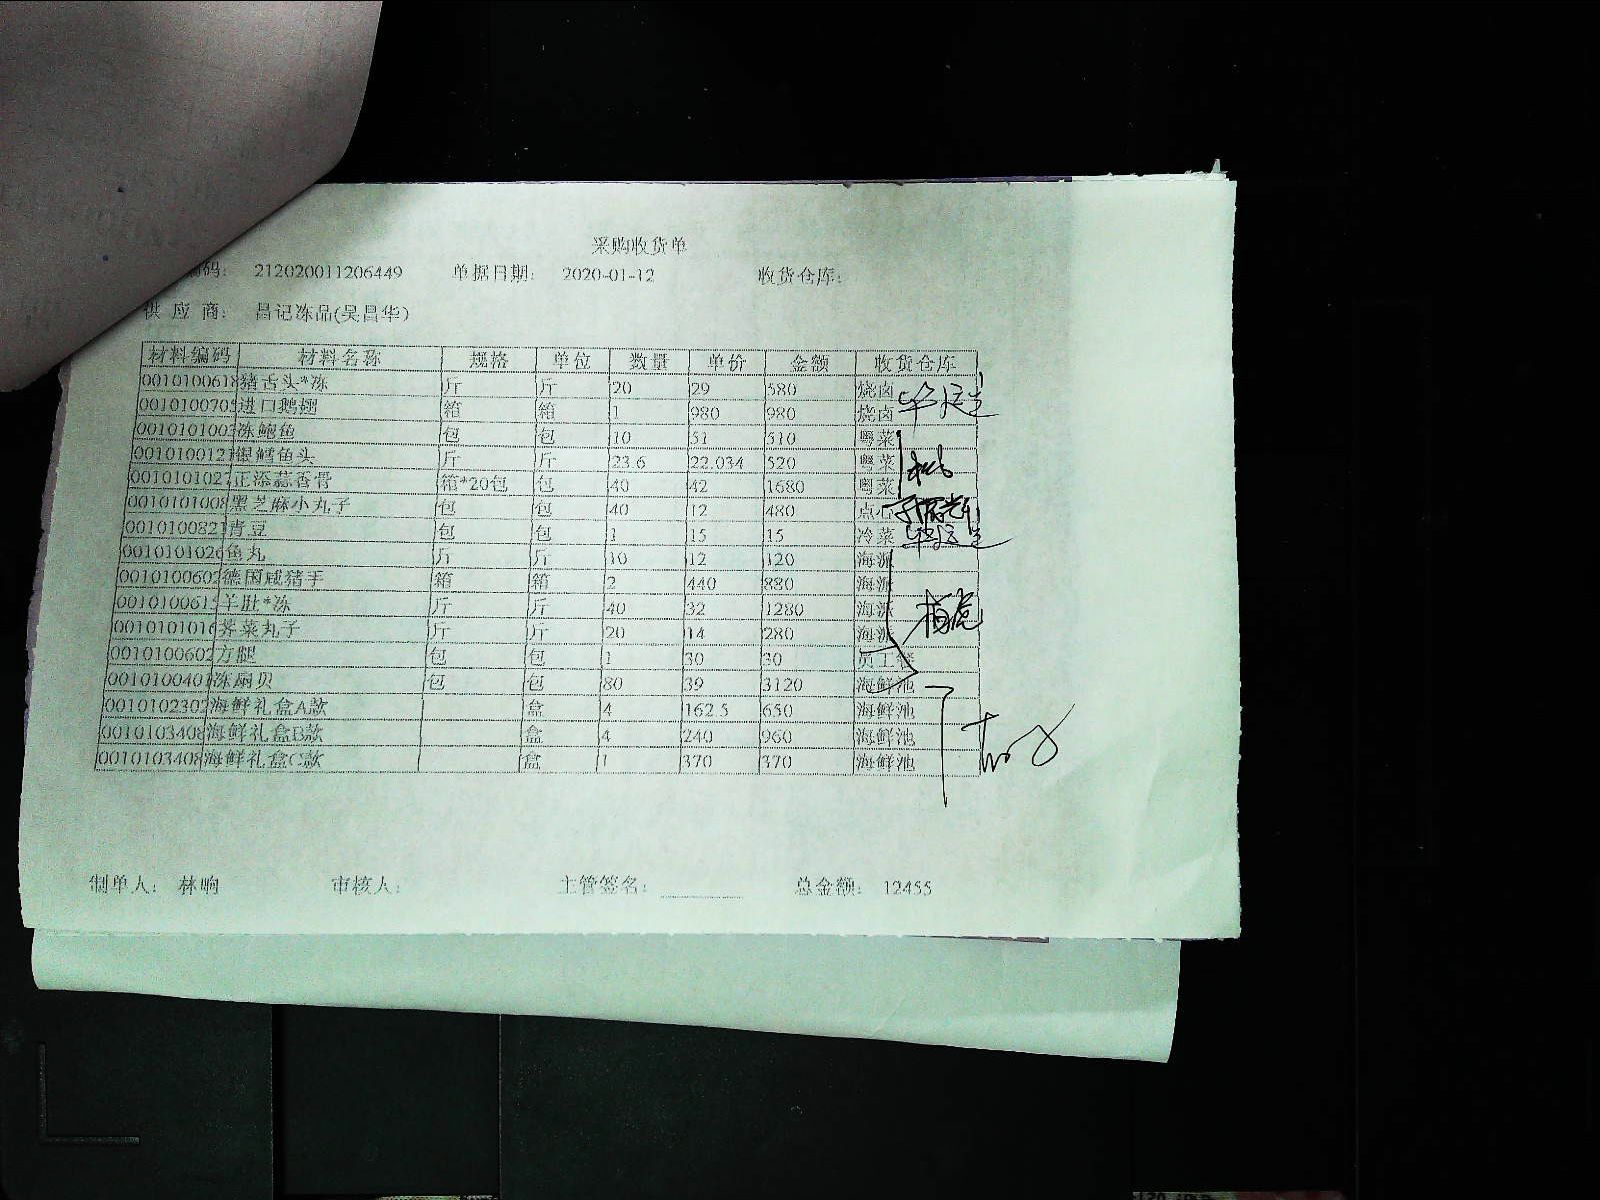 采购收货单
编码: 212020011206449 单据日期: 2020-01-12 收货仓库:
供应商: 昌记冻品(吴昌华)
材料编码 材料名称 规格 单位 数量 单价 金额 收货仓库
0010100618 猪舌头*冻 斤 斤 20 29 580 烧卤
0010100705 进口鹅翅 箱 箱 1 980 980 烧卤
0010101003 冻鲍鱼 包 包 10 51 510 粤菜
0010100121 银鳕鱼头 斤 斤 23.6 22.034 520 粤菜
0010101027 正添蒜香骨 箱*20包 包 40 42 1680 粤菜
0010101008 黑芝麻小丸子 包 包 40 12 480 点心
0010100821 青豆 包 包 1 15 15 冷菜
0010101026 鱼丸 斤 斤 10 12 120 海派
0010100602 德国咸猪手 箱 箱 2 440 880 海派
0010100615 羊肚*冻 斤 斤 40 32 1280 海派
0010101016 荠菜丸子 斤 斤 20 14 280 海派
0010100602 方腿 包 包 1 30 30 员工餐
0010100401 冻扇贝 包 包 80 39 3120 海鲜池
0010102302 海鲜礼盒A款 盒 4 162.5 650 海鲜池
0010103408 海鲜礼盒B款 盒 4 240 960 海鲜池
0010103408 海鲜礼盒C款 盒 1 370 370 海鲜池
制单人: 林响 审核人: 主管签名: 总金额: 12455